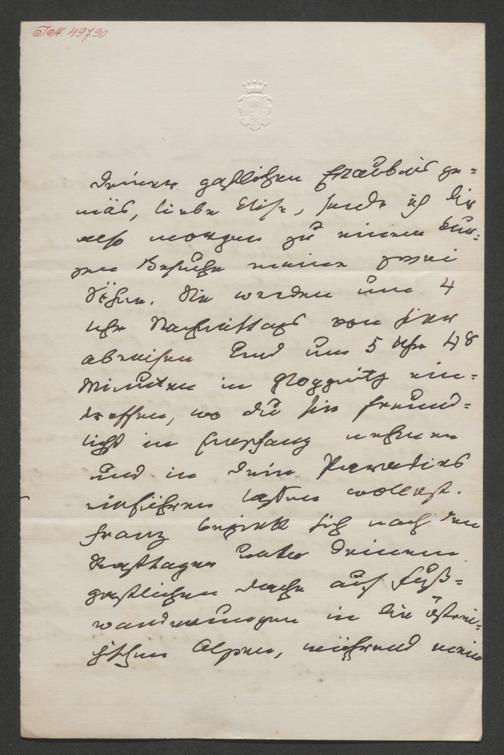 I.N. 49790
Deiner gastlichen Erlaubnis ge=
mäs, liebe Elise, sende ich Dir
also morgen zu einem kur=
zen Besuche meine zwei
Söhne. Sie werden um 4
Uhr Nachmittags von hier
abreisen und um 5 Uhr 48
Minuten in Gloggnitz ein=
treffen, wo du sie freund=
lichst in Empfang nehmen
und in Dein Paradies
einführen lassen wollest.
Franz begiebt sich nach den
Rasttagen unter Deinem
gastlichen Dache auf Fuß=
wanderungen in die östrei=
chischen Alpen, während mein